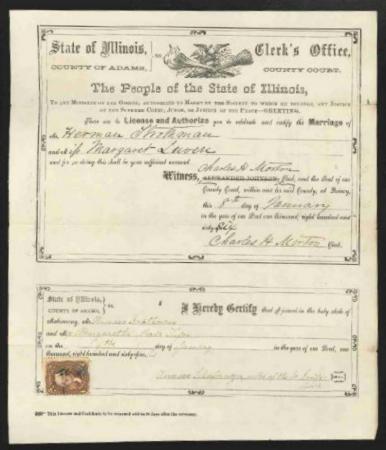 State of Illinois, ss. Clerk's Office,
COUNTY OF ADAMS, COUNTY COURT.
The People of the State of Illinois,
TO ANY MINISTER OF THE GOSPEL, AUTHORIZED TO MARRY BY THE SOCIETY TO WHICH HE BELONGS, ANY JUSTICE
OF THE SUPREME COURT, JUDGE, OR JUSTICE OF THE PEACE—GREETING.
These are to License and Authorize You to celebrate and certify the Marriage of
Mr. Herman
and M Margaret
and for so doing this shall be your sufficient warrant.
Charles H. Morton
Witness, ALEXANDER JOHNSON, Clerk, and the Seal of our
County Court, within and for said County, at Quincy,
this 8th day of January
in the year of our Lord one thousand, eight hundred and
sixty six
Charles H Morton Clerk.
State of Illinois, ss.
COUNTY OF ADAMS.
I Hereby Certify that I joined in the holy state of
Matrimony, Mr.
and M Margaretha
on the day of January in the year of our Lord, one
thousand, eight hundred and sixty
This License and Certificate to be returned within 30 days after the ceremony.